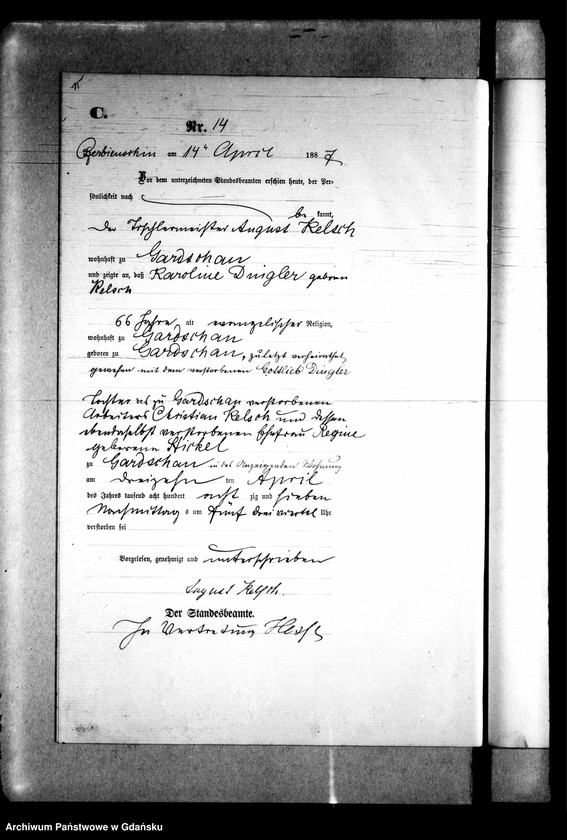 C.
Nr. 14
Czerbienschin am 14ten April 1887
Vor dem unterzeichneten Standesbeamten erschien heute, der Per-
sönlichkeit nach
be kannt,
der Tischlermeister August Kelsch
wohnhaft zu Gardschau
und zeigte an, daß Karoline Dingler geborene
Kelsch
66 Jahre alt evangelischer Religion,
wohnhaft zu Gardschau
geboren zu Gardschau, zuletzt verheirathet
gewesen mit dem verstorbenen Gottlieb Dingler
Tochter des zu Gardschau verstorbenen
Arbeiters Christian Kelsch und dessen
ebendaselbst verstorbenen Ehefrau Regine
geborene Hickel
zu Gardschau in des Anzeigenden Wohnung
am dreizehn ten April
des Jahres tausend acht hundert acht zig und sieben
Nachmittag s um fünf dreiviertel Uhr
verstorben sei
Vorgelesen, genehmigt und unterschrieben
August Kelsch.
Der Standesbeamte.
In Vertretung
Archiwum Państwowe w Gdańsku